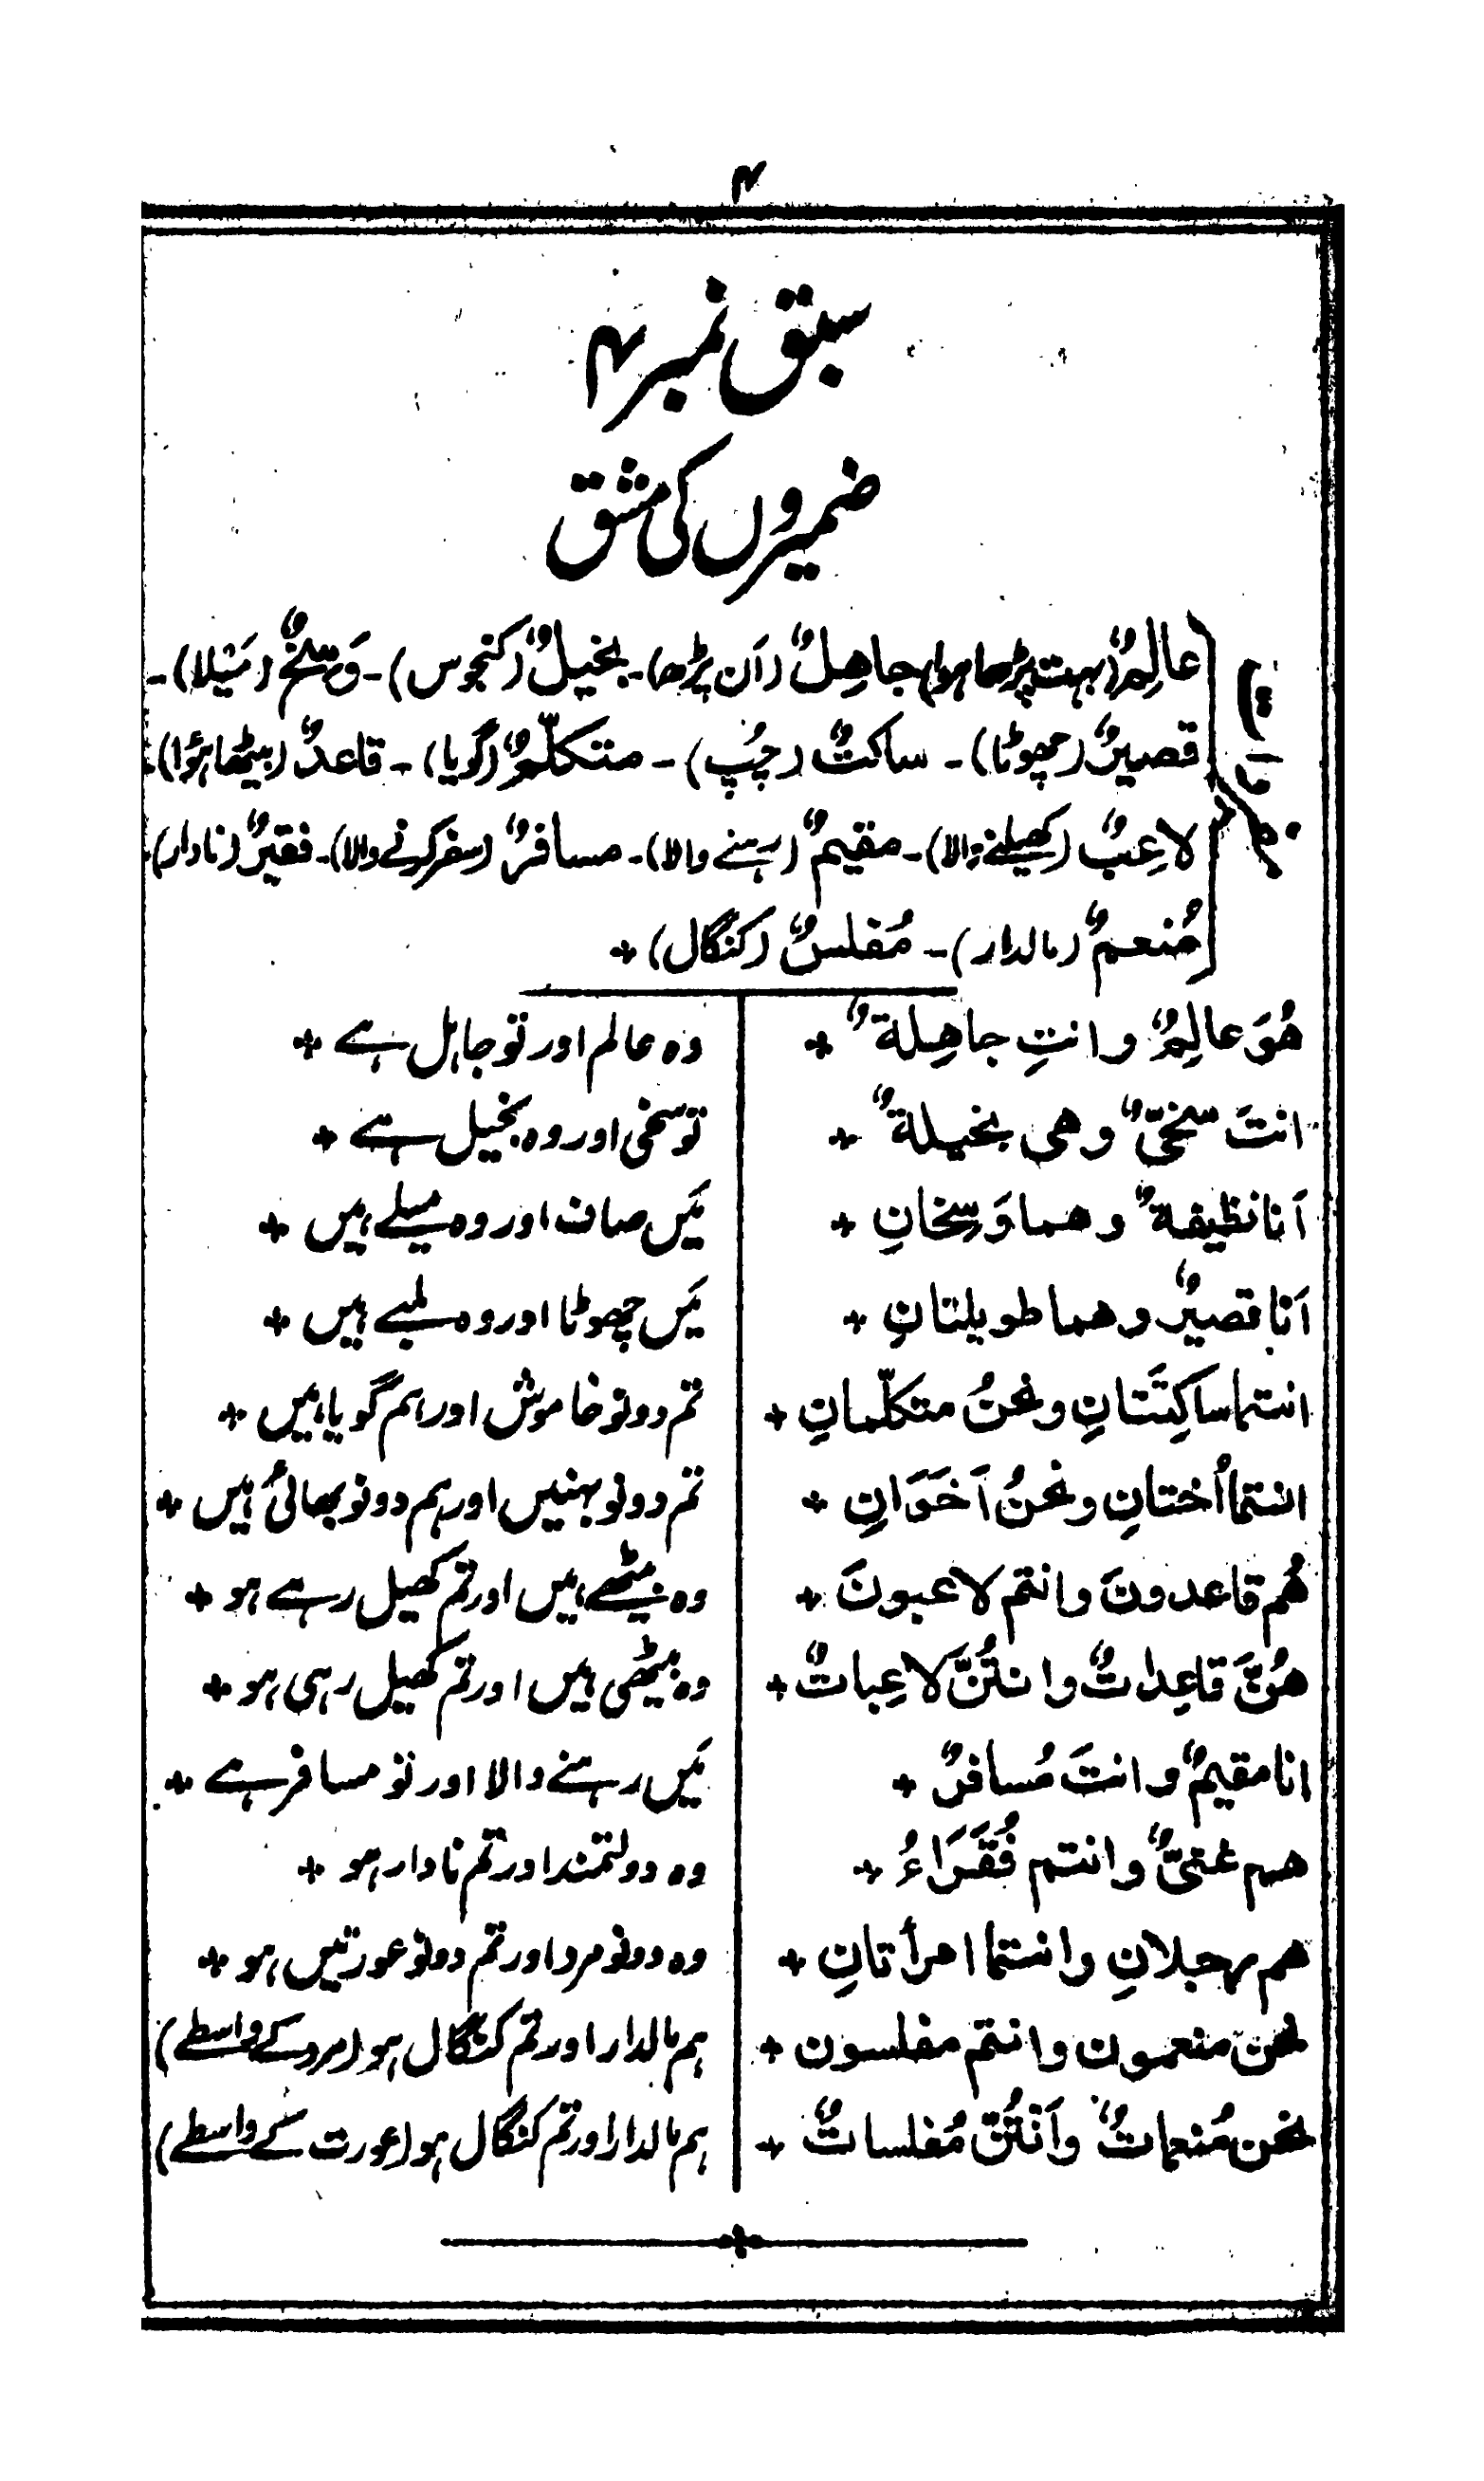 ۴
سبق نمبر ۴
ضمیروں کی مشق
عالِمٌ (بہت پڑھا ہوا) جاھِلٌ (اَن پڑھ)۔ بخیلٌ (کنجوس)۔ وَسِخٌ (مَیلا)۔
قصیرٌ (چھوٹا)۔ ساکتٌ (چُپ)۔ متکلّمٌ (گویا)۔ قاعدٌ (بیٹھا ہؤا)
لاعِبٌ (کھیلنے والا)۔ مقیمٌ (رہنے والا)۔ مسافرٌ (سفر کرنے والا)۔ فقیرٌ (نادار)
مُنعمٌ (مالدار)۔ مُفلسٌ (کنگال) +
ھُوَ عالِمٌ و انتِ جاھِلةٌ + وہ عالم اور تو جاہل ہے +
انتَ سخیٌّ و ھی بخیلةٌ + تو سخی اور وہ بخیل ہے +
اَنا نظیفةٌ و ھما وَسِخانِ + مَیں صاف اور وہ میلے ہیں +
اَنا قصیرٌ و ھما طویلتانِ + مَیں چھوٹا اور وہ لمبے ہیں +
انتما ساکِتَتانِ و نحنُ متکلّمانِ + تم دونو خاموش اور ہم گویا ہیں +
انتما اُختانِ و نحنُ اَخَوَانِ + تم دونو بہنیں اور ہم دونو بھائی ہیں +
ھُم قاعدونَ و انتم لاعبونَ + وہ بیٹھے ہیں اور تم کھیل رہے ہو +
ھُنَّ قاعِداتٌ و انتُنَّ لاعِباتٌ + وہ بیٹھی ہیں اور تم کھیل رہی ہو +
انا مقیمٌ و انتَ مُسافرٌ + مَیں رہنے والا اور تو مسافر ہے +
ھم غنیٌّ و انتم فُقَرَاءُ + وہ دولتمند اور تم نادار ہو +
ھم رجلانِ و انتما امرأتانِ + وہ دونو مرد اور تم دونو عورتیں ہو +
نحن منعمون و انتم مفلسون + ہم مالدار اور تم کنگال ہو (مرد کے واسطے)
نحن مُنعماتٌ و اَنتُنَّ مُفلساتٌ + ہم مالدار اور تم کنگال ہو (عورت کے واسطے)